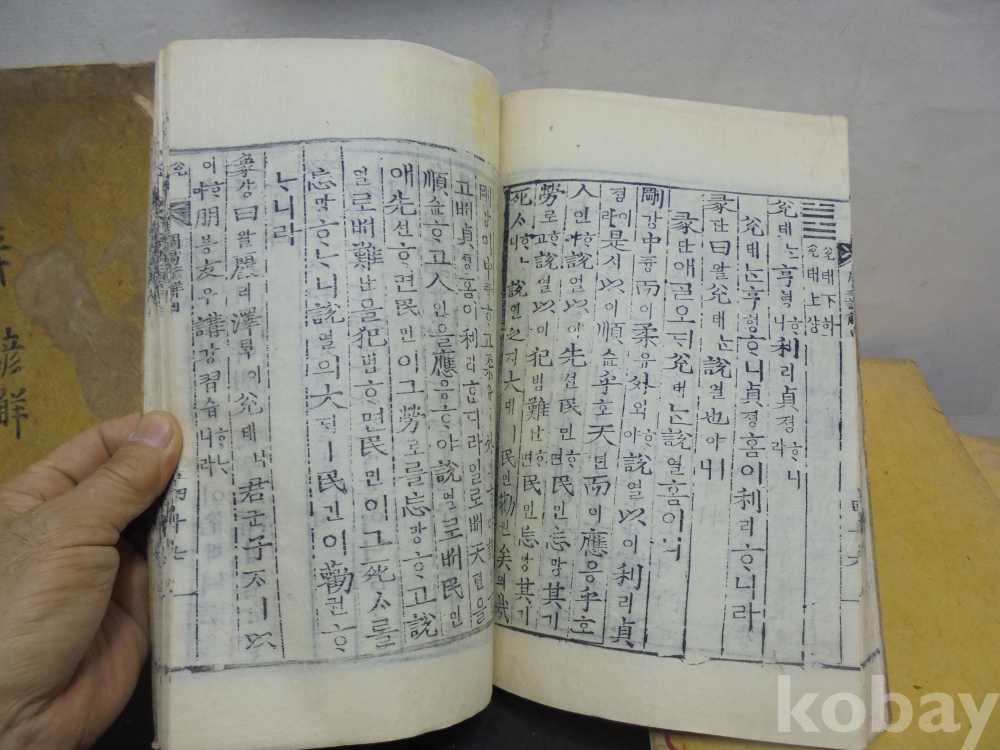 兌태下하
兌태上샹
兌태ᄂᆞᆫ亨형ᄒᆞ니利리貞졍ᄒᆞ니라
兌태ᄂᆞᆫ亨형ᄒᆞ니貞졍홈이利리ᄒᆞ니라
彖단曰왈兌태ᄂᆞᆫ說열也야ㅣ니
彖단애ᄀᆞᆯ오ᄃᆡ兌태ᄂᆞᆫ說열홈이니
剛강中듕而이柔유外외ᄒᆞ야說열以이利리貞
졍이라是시以이順슌乎호天텬而이應응乎호
人인ᄒᆞ야說열以이先션民민ᄒᆞ면民민忘망其기
勞로ᄒᆞ고說열以이犯범難난ᄒᆞ면民민忘망其기
死ᄉᆞᄒᆞᄂᆞ니說열之지大대ㅣ民민勸권矣의哉
剛강이中듕ᄒᆞ고
고ᄡᅥ貞졍홈이利리ᄒᆞ디라일로ᄡᅥ天텬을
順슌ᄒᆞ고人인을應응ᄒᆞ야說열로ᄡᅥ民민
애先션ᄒᆞ면民민이그勞로를忘망ᄒᆞ고說
열로ᄡᅥ難난을犯범ᄒᆞ면民민이그死ᄉᆞ를
忘망ᄒᆞᄂᆞ니說열의大대ㅣ民민이勸권ᄒᆞ
ᄂᆞ니라
象샹曰왈麗리澤ᄐᆡᆨ이兌태니君군子ᄌᆞㅣ以
이ᄒᆞ야朋붕友우講강習습ᄒᆞᄂᆞ니라
兌
周易諺解四
諺解
kobay